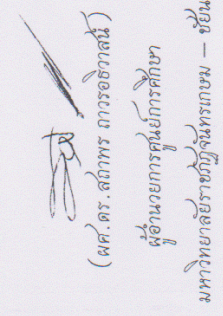 (ผศ.ดร.สถาพร ถาวรอธิวาสน์)
ผู้อำนวยการศูนย์การศึกษา
มหาวิทยาลัยราชภัฏจันทรเกษม – ชัยน